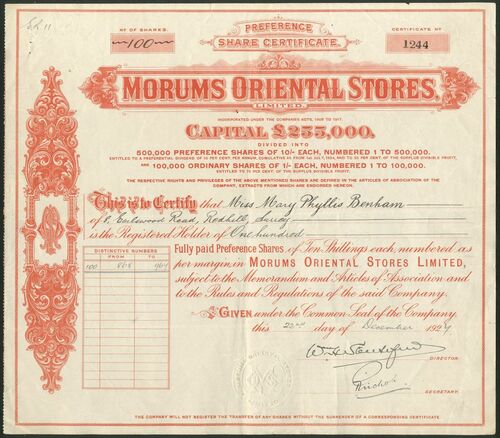 Nº OF SHARES.
100
PREFERENCE
SHARE CERTIFICATE.
CERTIFICATE Nº
1244
MORUMS ORIENTAL STORES,
LIMITED.
INCORPORATED UNDER THE COMPANIES ACTS, 1908 TO 1917.
CAPITAL £255,000.
DIVIDED INTO
500,000 PREFERENCE SHARES OF 10/- EACH, NUMBERED 1 TO 500,000.
ENTITLED TO A PREFERENTIAL DIVIDEND OF 10 PER CENT. PER ANNUM, CUMULATIVE AS FROM 1st JULY, 1924, AND TO 25 PER CENT. OF THE SURPLUS DIVISIBLE PROFIT,
AND 100,000 ORDINARY SHARES OF 1/- EACH, NUMBERED 1 TO 100,000.
ENTITLED TO 75 PER CENT. OF THE SURPLUS DIVISIBLE PROFIT.
THE RESPECTIVE RIGHTS AND PRIVILEGES OF THE ABOVE MENTIONED SHARES ARE DEFINED IN THE ARTICLES OF ASSOCIATION OF THE
COMPANY, EXTRACTS FROM WHICH ARE ENDORSED HEREON.
This is to Certify that Mrs Mary Phyllis Benham
of 8, Earlswood Road, Redhill, Surrey
is the Registered Holder of One hundred
Fully paid Preference Shares of Ten Shillings each, numbered as
per margin in MORUMS ORIENTAL STORES LIMITED,
subject to the Memorandum and Articles of Association and
to the Rules and Regulations of the said Company.
DISTINCTIVE NUMBERS
FROM TO
100
GIVEN under the Common Seal of the Company
this 22nd day of December 1924
DIRECTOR.
SECRETARY.
THE COMPANY WILL NOT REGISTER THE TRANSFER OF ANY SHARES WITHOUT THE SURRENDER OF A CORRESPONDING CERTIFICATE.